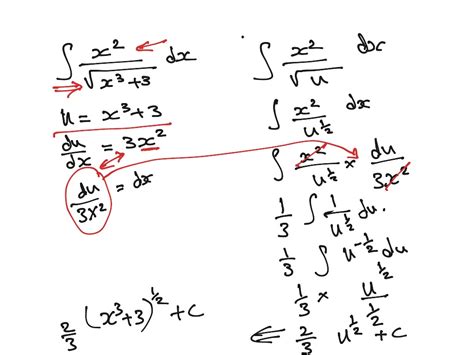 ∫ x²/√(x³+3) dx
u = x³+3
du/dx = 3x²
du/3x² = dx
2/3 (x³+3)^½ + c
∫ x²/√u dx
∫ x²/u^½ dx
∫ x²/u^½ × du/3x²
1/3 ∫ 1/u^½ du.
1/3 ∫ u^-½ du
1/3 × u^½/½
⇐ 2/3 u^½ + c